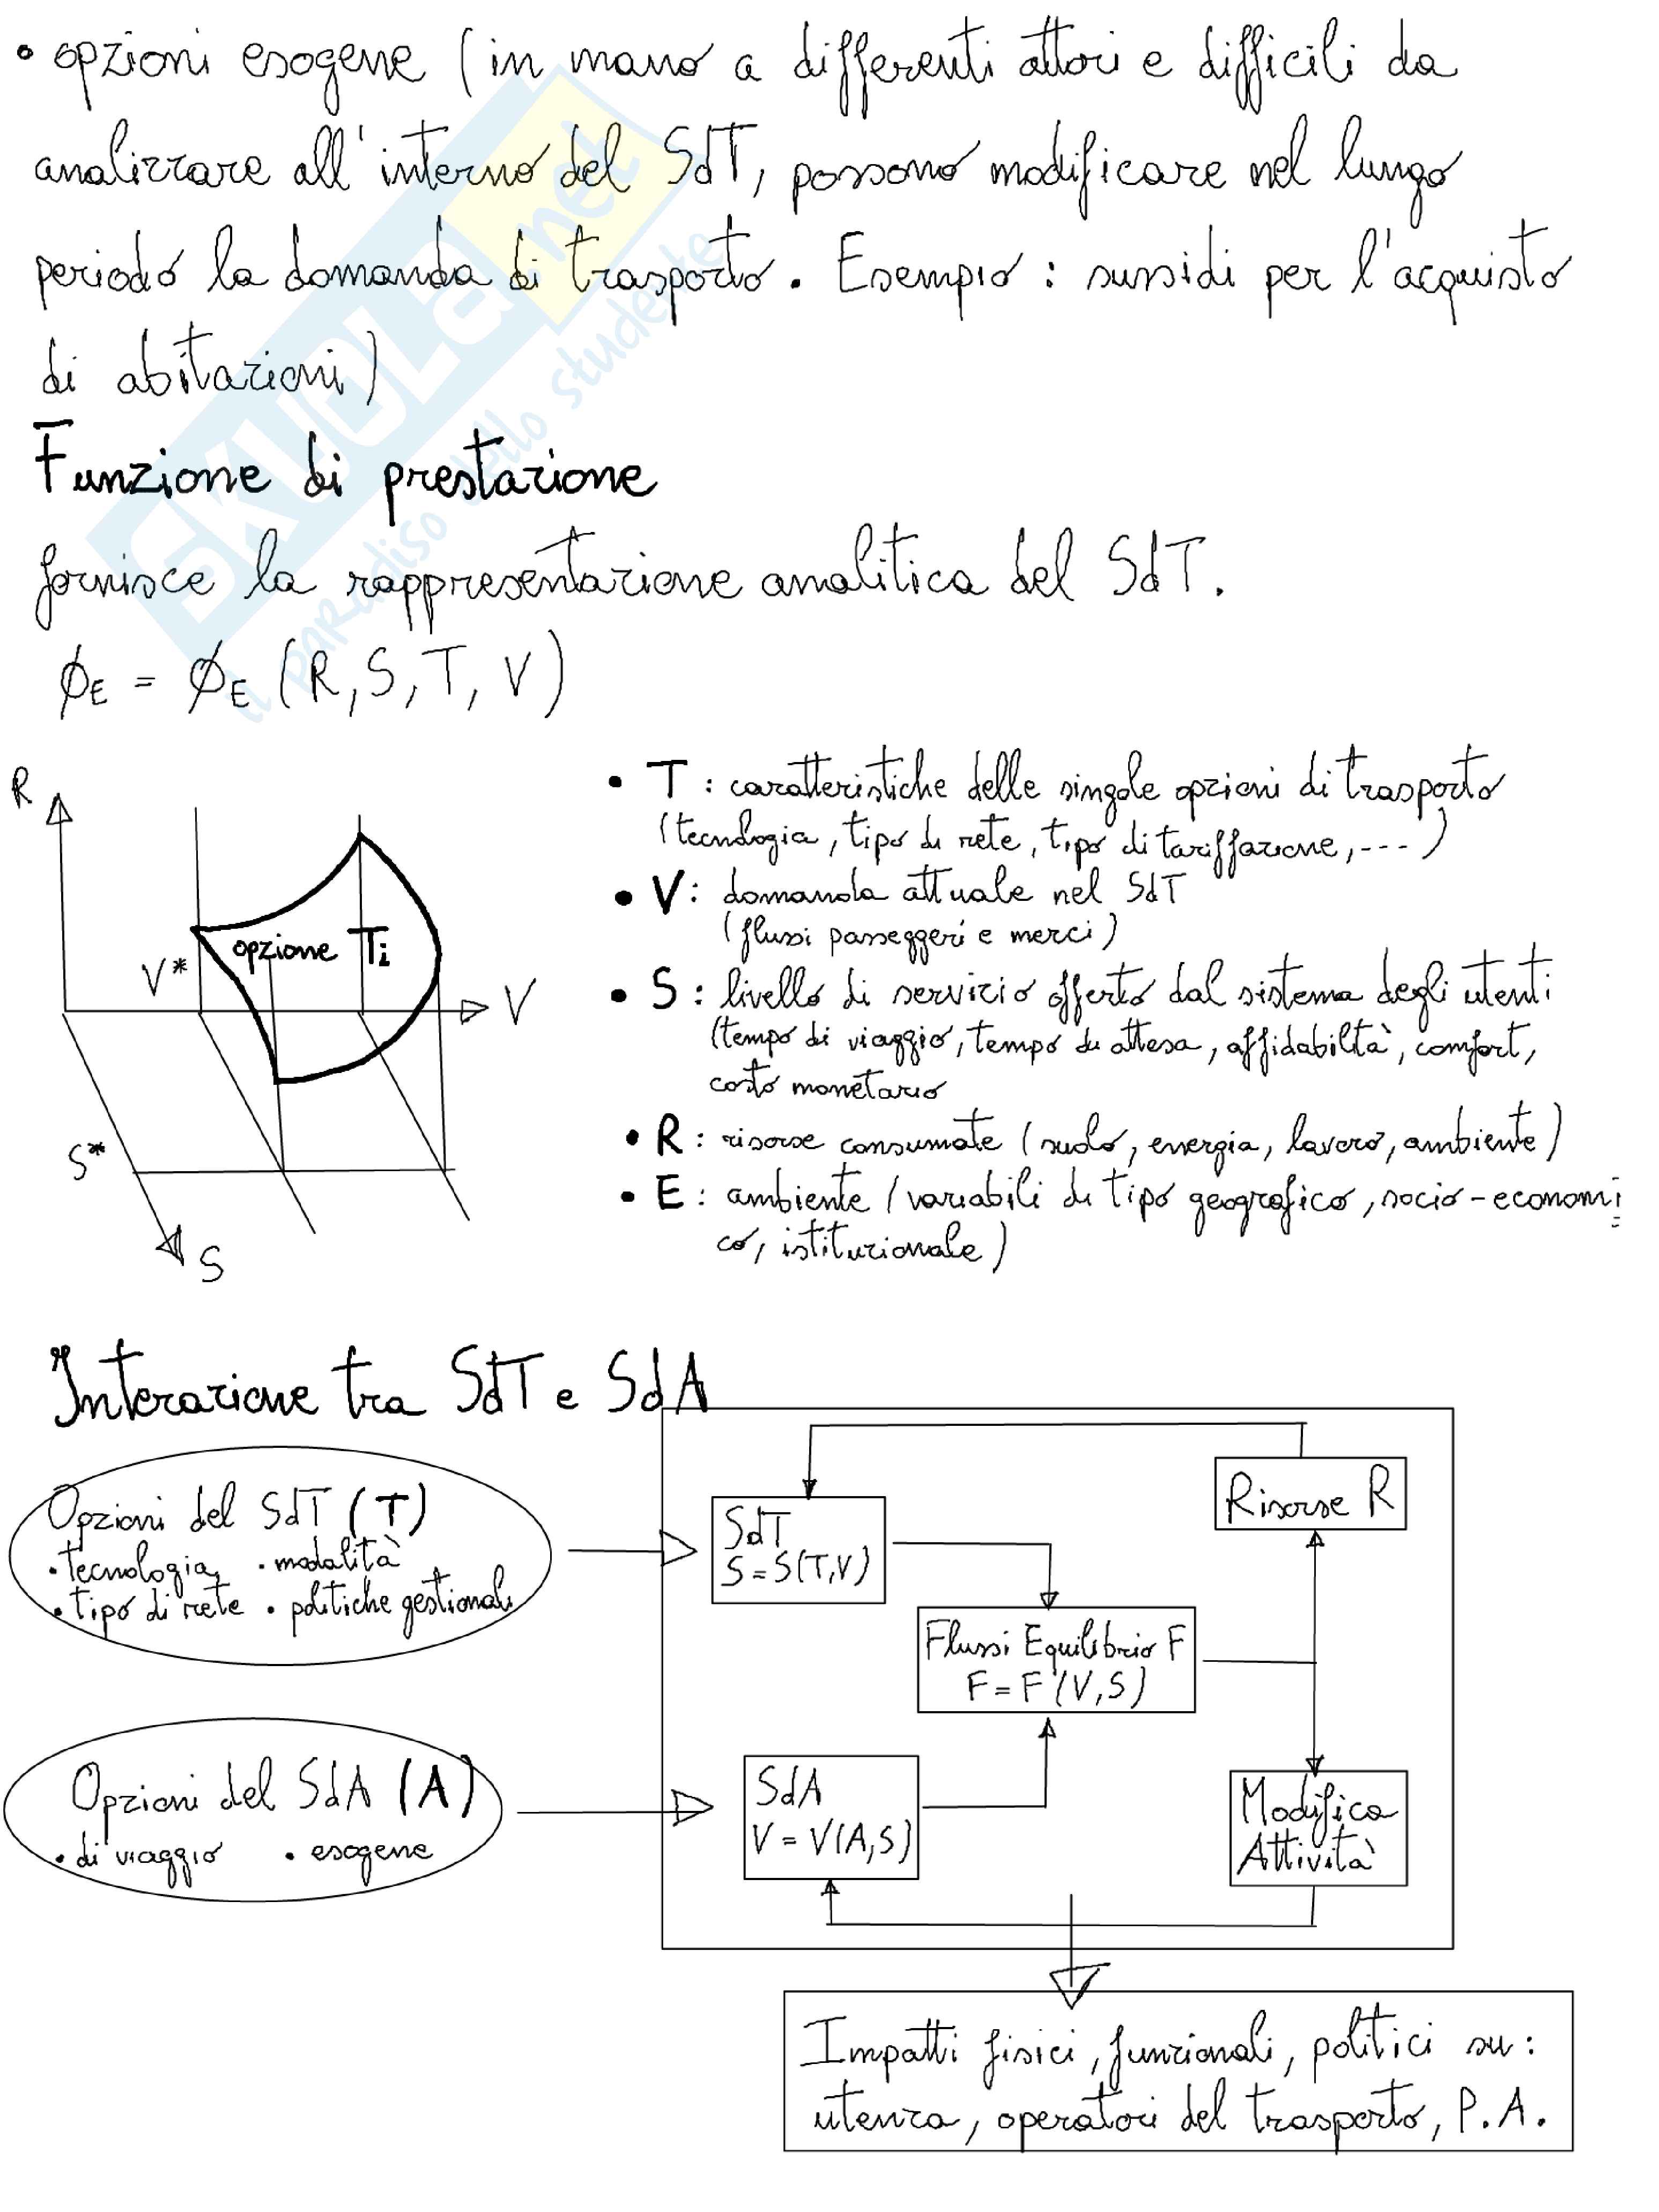 • opzioni esogene (in mano a differenti attori e difficili da
analizzare all'interno del SdT, possono modificare nel lungo
periodo la domanda di trasporto. Esempio: sussidi per l'acquisto
di abitazioni)
Funzione di prestazione
fornisce la rappresentazione analitica del SdT.
ϕE = ϕE (R, S, T, V)
R
V*
opzione Ti
V
S*
S
• T: caratteristiche delle singole opzioni di trasporto
(tecnologia, tipo di rete, tipo di tariffazione, ---)
• V: domanda attuale nel SdT
(flussi passeggeri e merci)
• S: livello di servizio offerto dal sistema degli utenti
(tempo di viaggio, tempo di attesa, affidabiltà, comfort,
costo monetario
• R: risorse consumate (suolo, energia, lavoro, ambiente)
• E: ambiente (variabili di tipo geografico, socio-economi
co, istituzionale)
Interazione tra SdT e SdA
Opzioni del SdT (T)
• tecnologia • modalità
• tipo di rete • politiche gestionali
Opzioni del SdA (A)
• di viaggio • esogene
SdT
S = S(T,V)
Risorse R
Flussi Equilibrio F
F = F(V,S)
SdA
V = V(A,S)
Modifica
Attività
Impatti fisici, funzionali, politici su:
utenza, operatori del trasporto, P.A.
SKUOLA.net
il paradiso dello studente